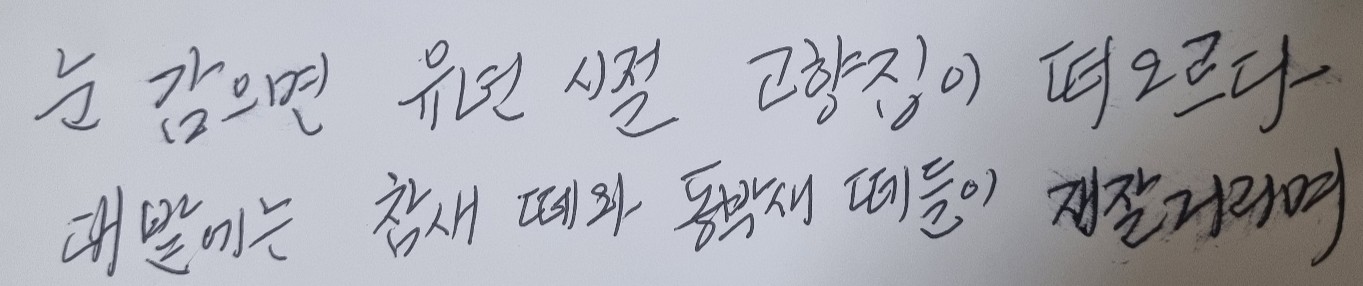 눈 감으면 유년 시절 고향집이 떠오르다
대밭에는 참새 떼와 동박새 떼들이 재잘거리며